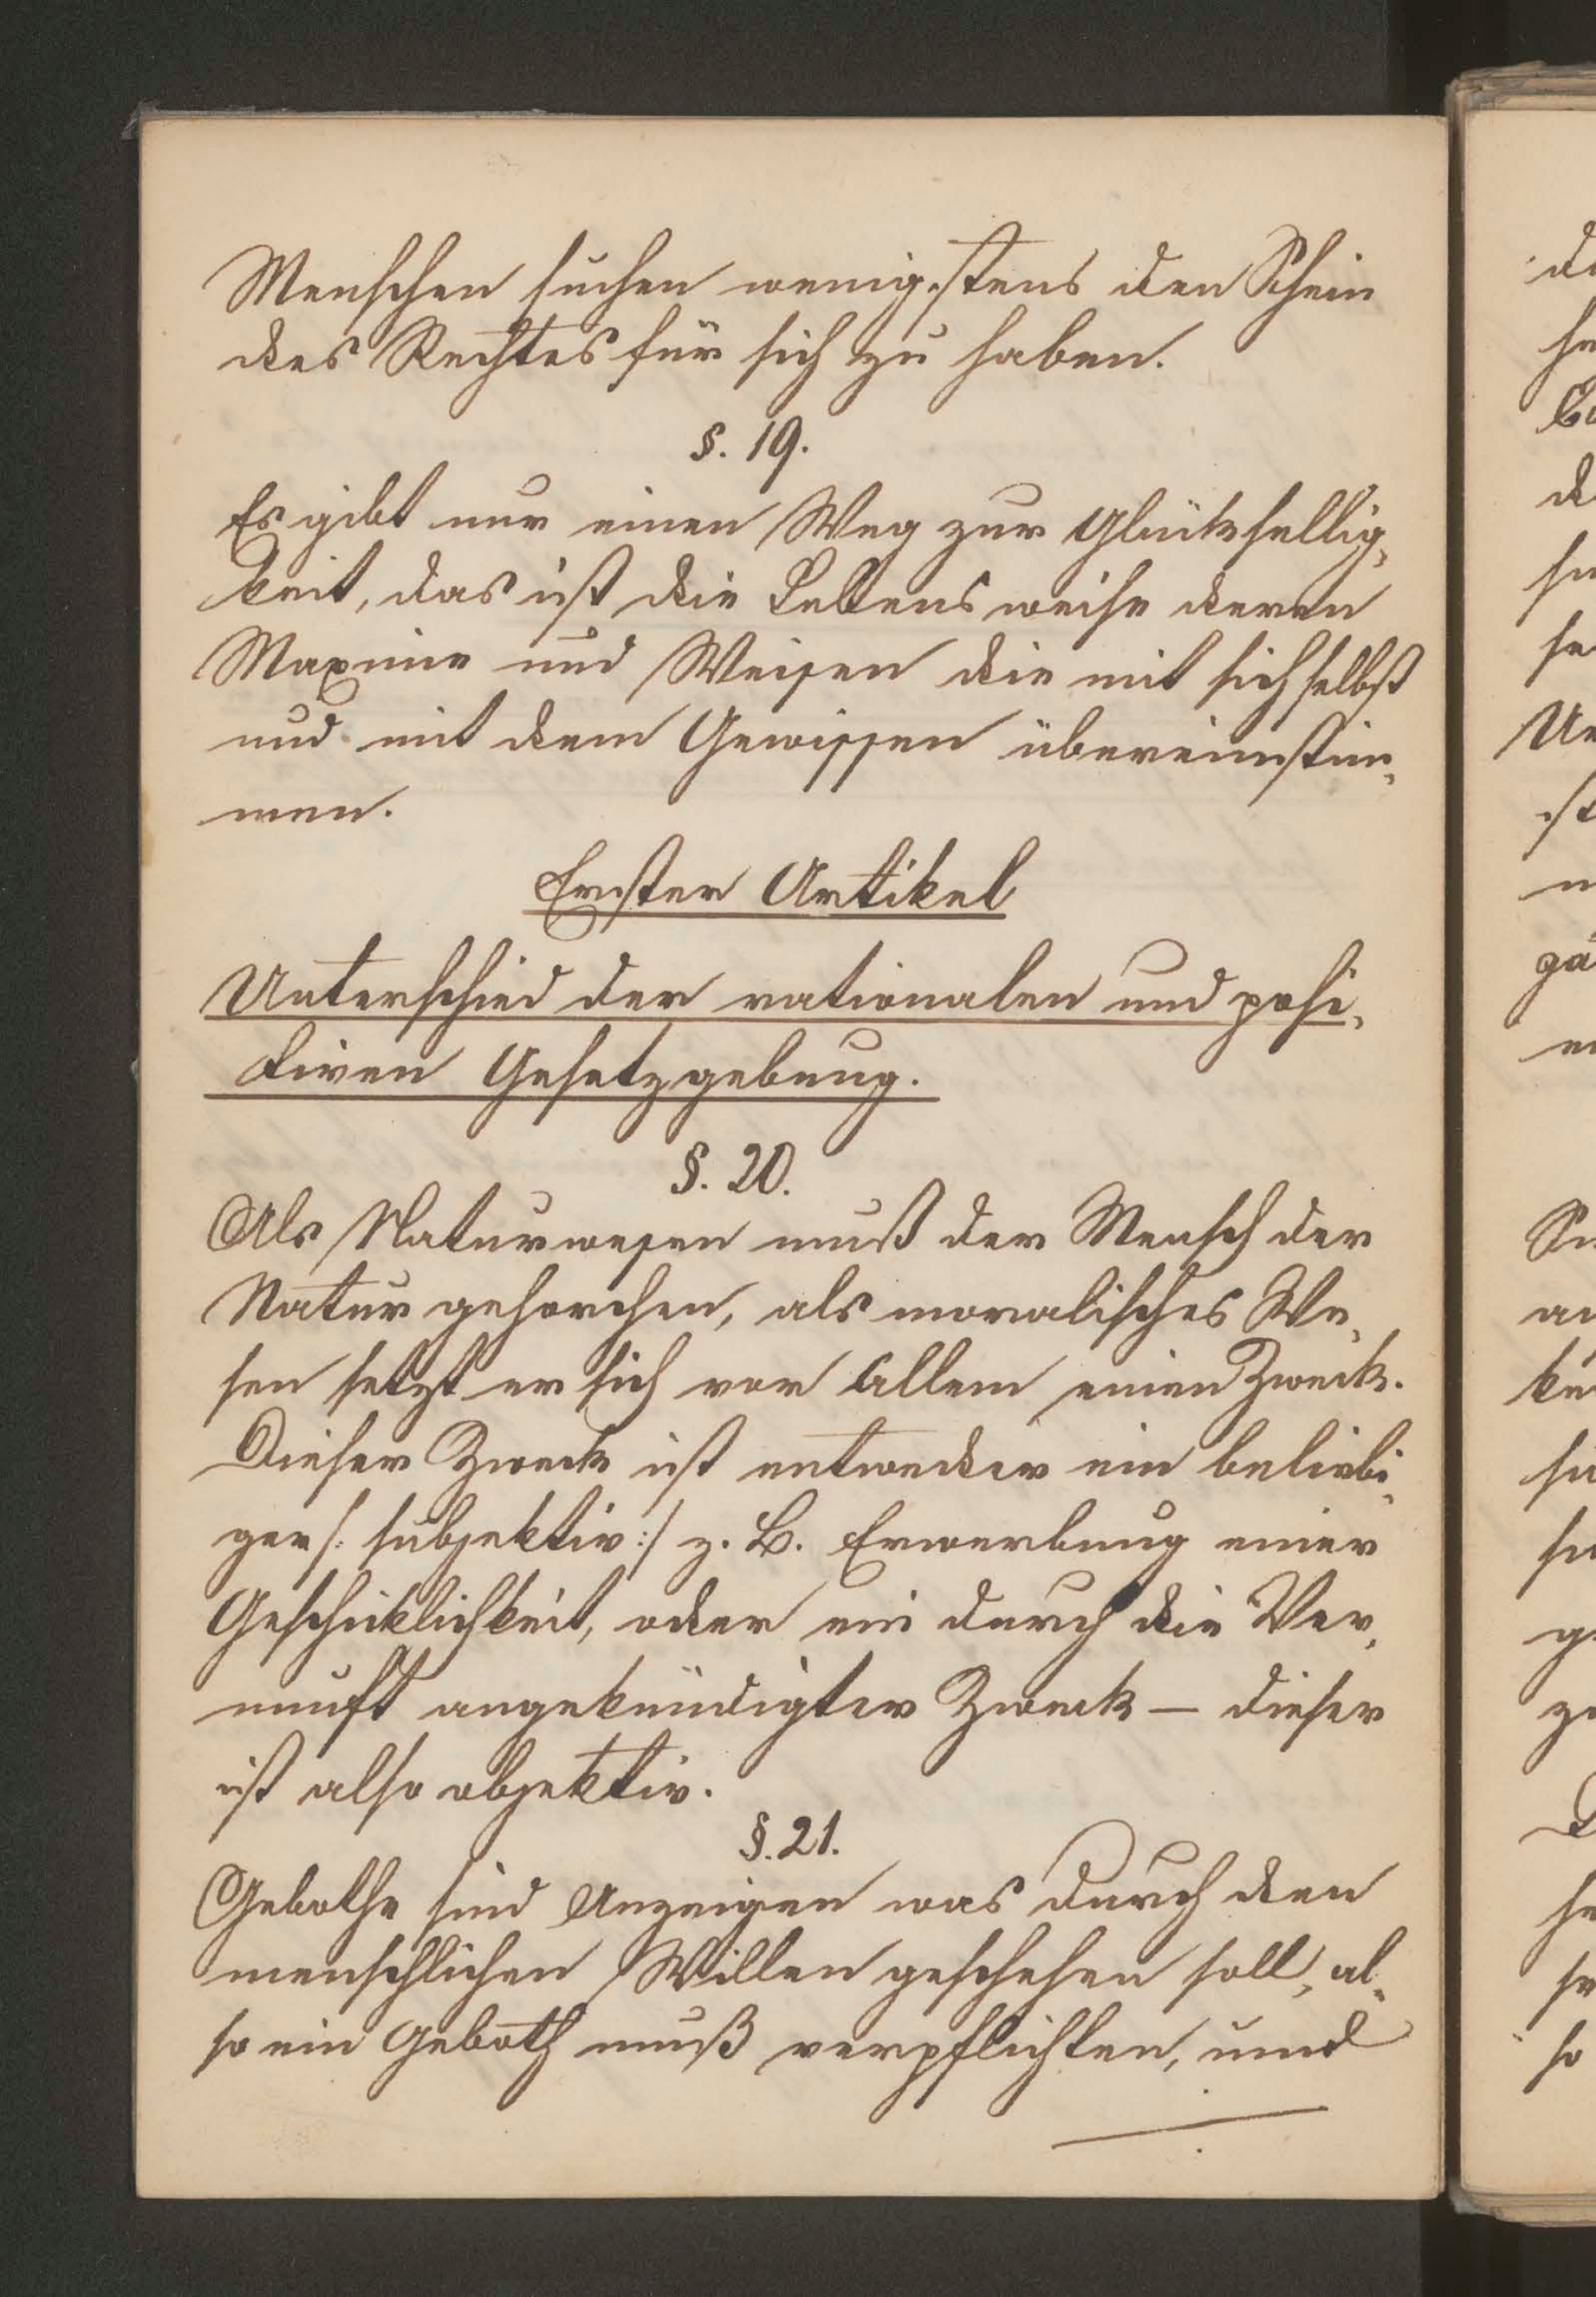 Menschen suchen wenigstens den Schein
des Rechtes für sich zu haben.
§. 19.
Es gibt nur einen Weg zur Glückselig,
keit, das ist die Lebensweise deren
Maxime und Weisen die mit sich selbst
und mit dem Gewissen übereinstim,
men.
Erster Artikel
Unterschied der rationalen und posi,
tiven Gesetzgebung.
§. 20.
Als Naturwesen muß der Mensch der
Natur gehorchen, als moralisches We,
sen setzt er sich vor Allem einen Zweck.
Dieser Zweck ist entweder ein beliebi,
ger /: subjektiv :/ z. B. Erwerbung einer
Geschicklichkeit, oder ein durch die Ver,
nunft angekündigter Zweck – dieser
ist also objektiv.
§. 21.
Gebothe sind Anzeigen was durch den
menschlichen Willen geschehen soll, al,
so ein Geboth muß verpflichten, und